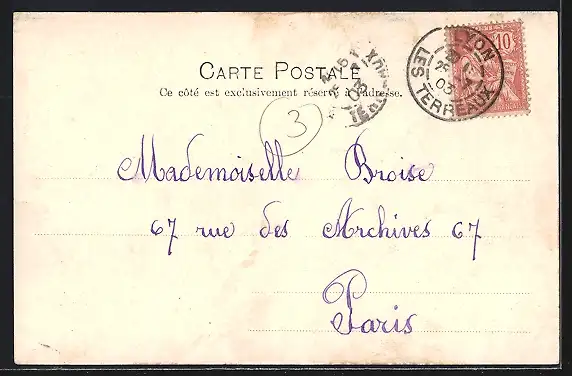 CARTE POSTALE
Ce côté est exclusivement réservé à l'adresse.
LYON
LES TERREAUX
03
10
3
Mademoiselle Broise
67 rue des Archives 67
Paris